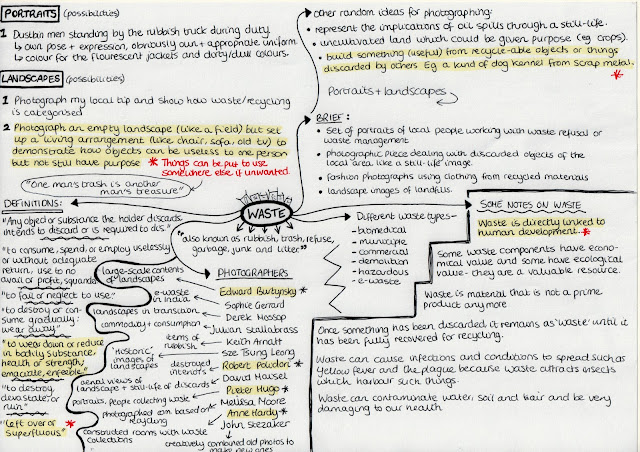 PORTRAITS (possibilities)
1 Dustbin men standing by the rubbish truck during duty.
↳ own pose + expression, obviously own + appropriate uniform
↳ colour for the flourescent jackets and dirty/dull colours.
LANDSCAPES (possibilities)
1 Photograph my local tip and show how waste/recycling
is categorised
2 Photograph an empty landscape (like a field) but set
up a living arrangement (like chair, sofa, old tv) to
demonstrate how objects can be useless to one person
but not still have purpose * Things can be put to use
somewhere else if unwanted.
"One man's trash is another
man's treasure"
other random ideas for photographing:
• represent the implications of oil spills through a still-life.
• uncultivated land which could be given purpose (eg crops).
• build something (useful) from recycle-able objects or things
discarded by others. Eg a kind of dog kennel from scrap metal.
*
Portraits + landscapes
BRIEF:
• Set of portraits of local people working with waste refusal or
waste management
• photographic piece dealing with discarded objects of the
local area like a still-life image.
• fashion photographs using clothing from recycled materials
• landscape images of landfills.
DEFINITIONS:
"Any object or substance the holder discards,
intends to discard or is required to dis."
"to consume, spend, or employ uselessly
or without adequate
return, use to no
avail or profit, squander"
"to fail or neglect to use"
"to destroy or con-
sume gradually:
wear away"
"to wear down or reduce
in bodily substance,
health or strength;
emaciate, enfeeble"
"to destroy,
devastate, or
ruin"
"left over or
superfluous" *
WASTE
"also known as rubbish, trash, refuse,
garbage, junk and litter"
Different waste types-
- biomedical
- municiple
- commercial
- demolition
- hazardous
- e-waste
PHOTOGRAPHERS
large-scale contents
of landscapes
Edward Burtynsky *
e-waste
in India
Sophie Gerrard
landscapes in transition
Derek Mossop
commodity + consumption
Julian Stallabrass
items of
rubbish
Keith Arnatt
"historic"
images of
landscapes
Sze Tsung Leong
destroyed
interiors
Robert Polidori *
aerial views of
landscape + still-life of discards
David Maisel
Portraits, people collecting waste
Pieter Hugo *
photographed
recycling
Mellissa Moore
Anne Hardy *
constructed rooms with waste
collections
John Stezaker
creatively combined old photos to
make new ones
SOME NOTES ON WASTE
Waste is directly linked to
human development. *
Some waste components have econo-
mical value and some have ecological
value - they are a valuable resource.
Waste is material that is not a prime
product anymore
Once something has been discarded it remains as 'waste' until it
has been fully recovered for recycling.
Waste can cause infections and conditions to spread such as
Yellow fever and the plague because waste attracts insects
which harbour such things.
Waste can contaminate water, soil and hair and be very
damaging to our health